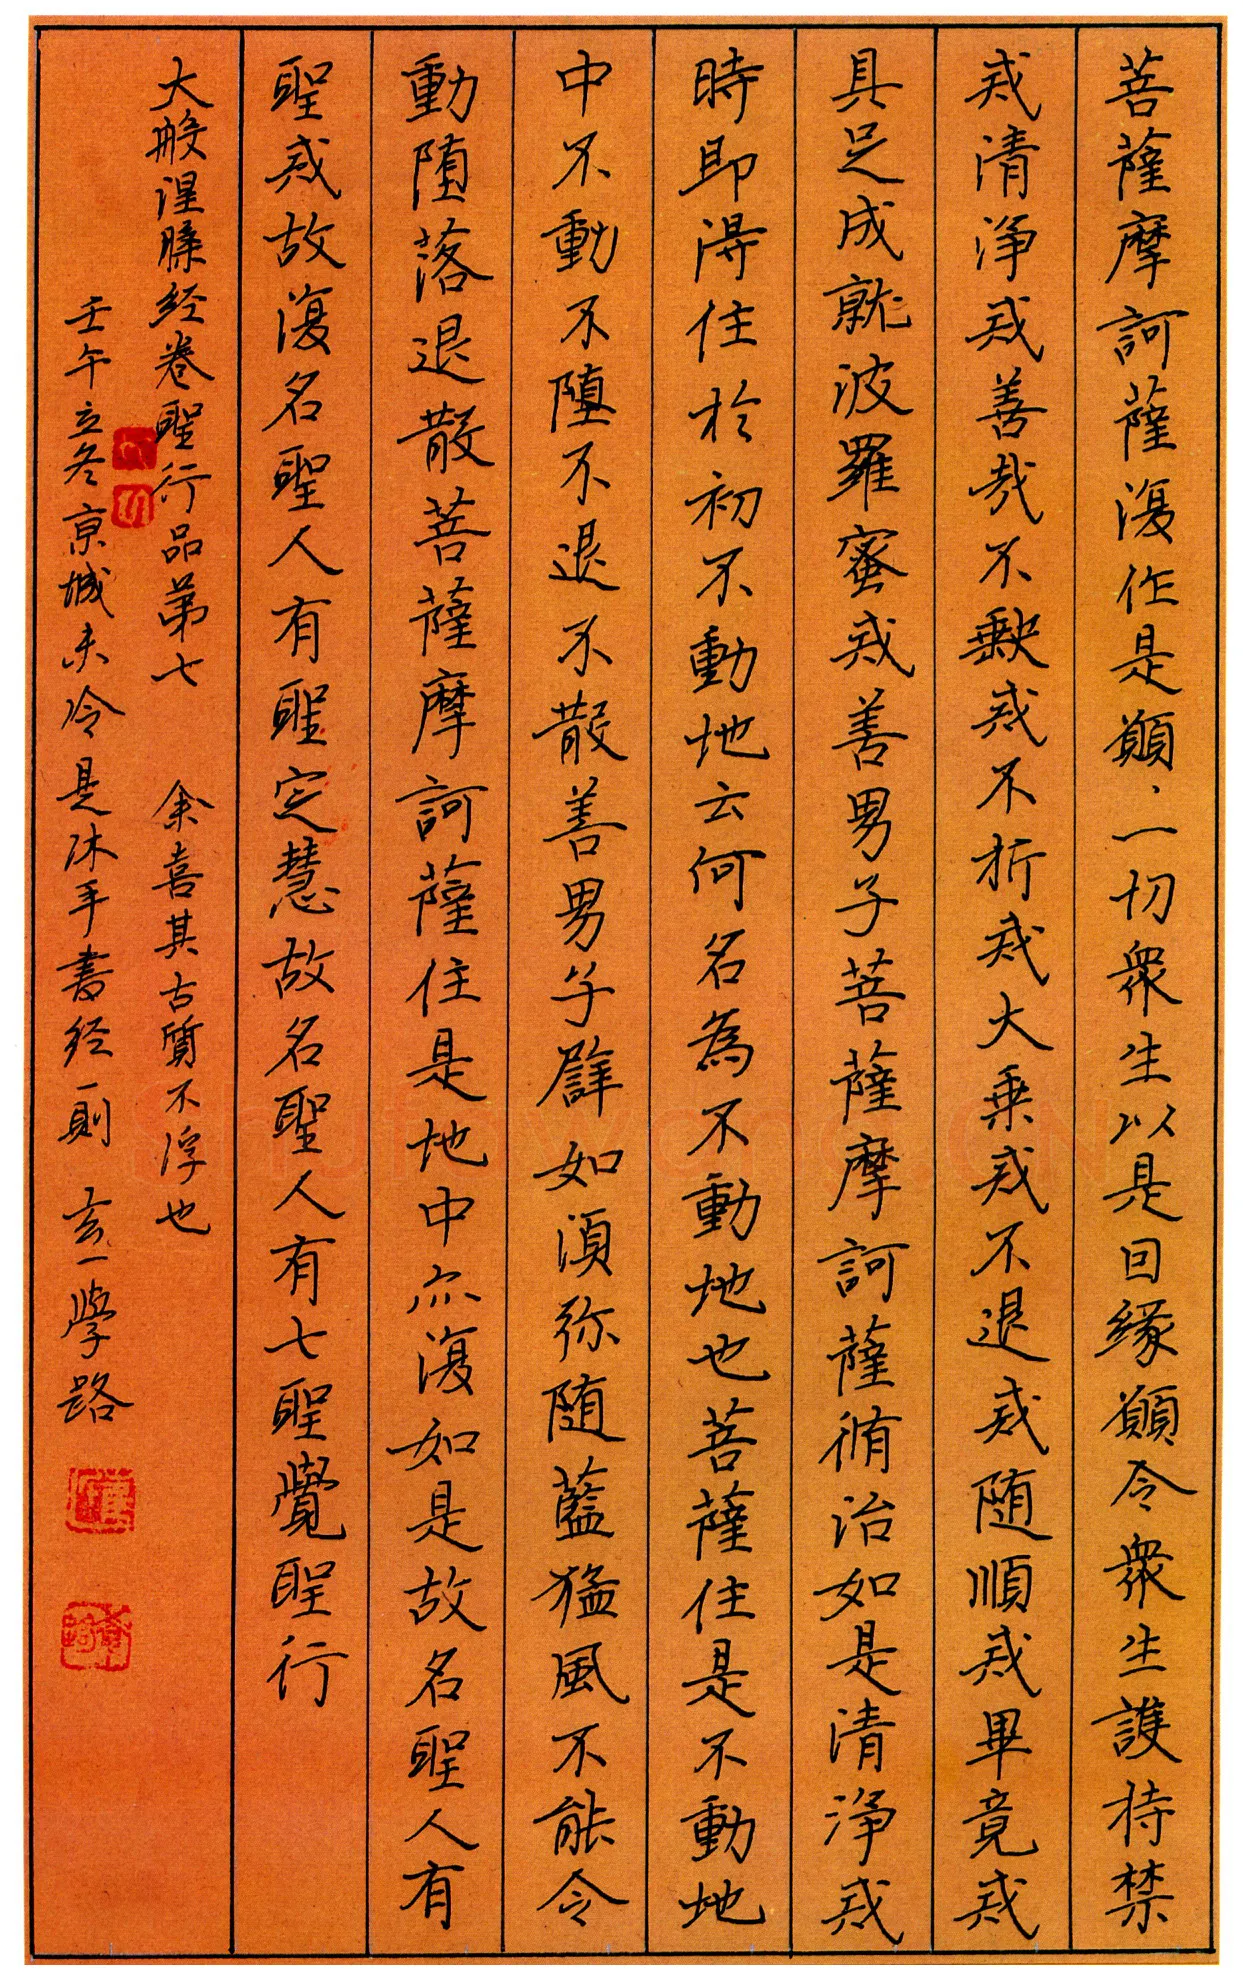 菩薩摩訶薩復作是願、一切衆生以是回緣願令衆生護持禁
戒清淨戒善哉不缺戒不析戒大乗戒不退戒随順戒畢竟戒
具足成就波羅蜜戒善男子菩薩摩訶薩脩治如是清淨戒
時即得住於初不動地云何名為不動地也菩薩住是不動地
中不動不堕不退不散善男子譬如須弥随藍猛風不能令
動堕落退散菩薩摩訶薩住是地中亦復如是故名聖人有
聖戒故復名聖人有聖定慧故名聖人有七聖覺聖行
大般涅槃经卷聖行品第七 余喜其古質不浮也
壬午立冬京城未冷是沐手書经一則 玄一學路